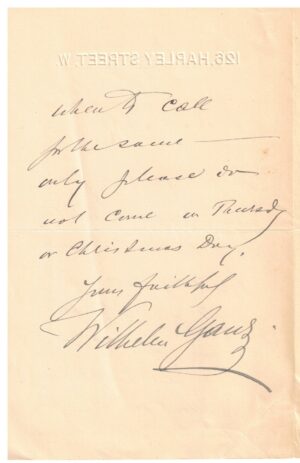 126, HARLEY STREET. W.
when to call
for the same —
only please do
not come on Thursday
or Christmas Day.
Yours faithfully
Wilhelm Ganz.